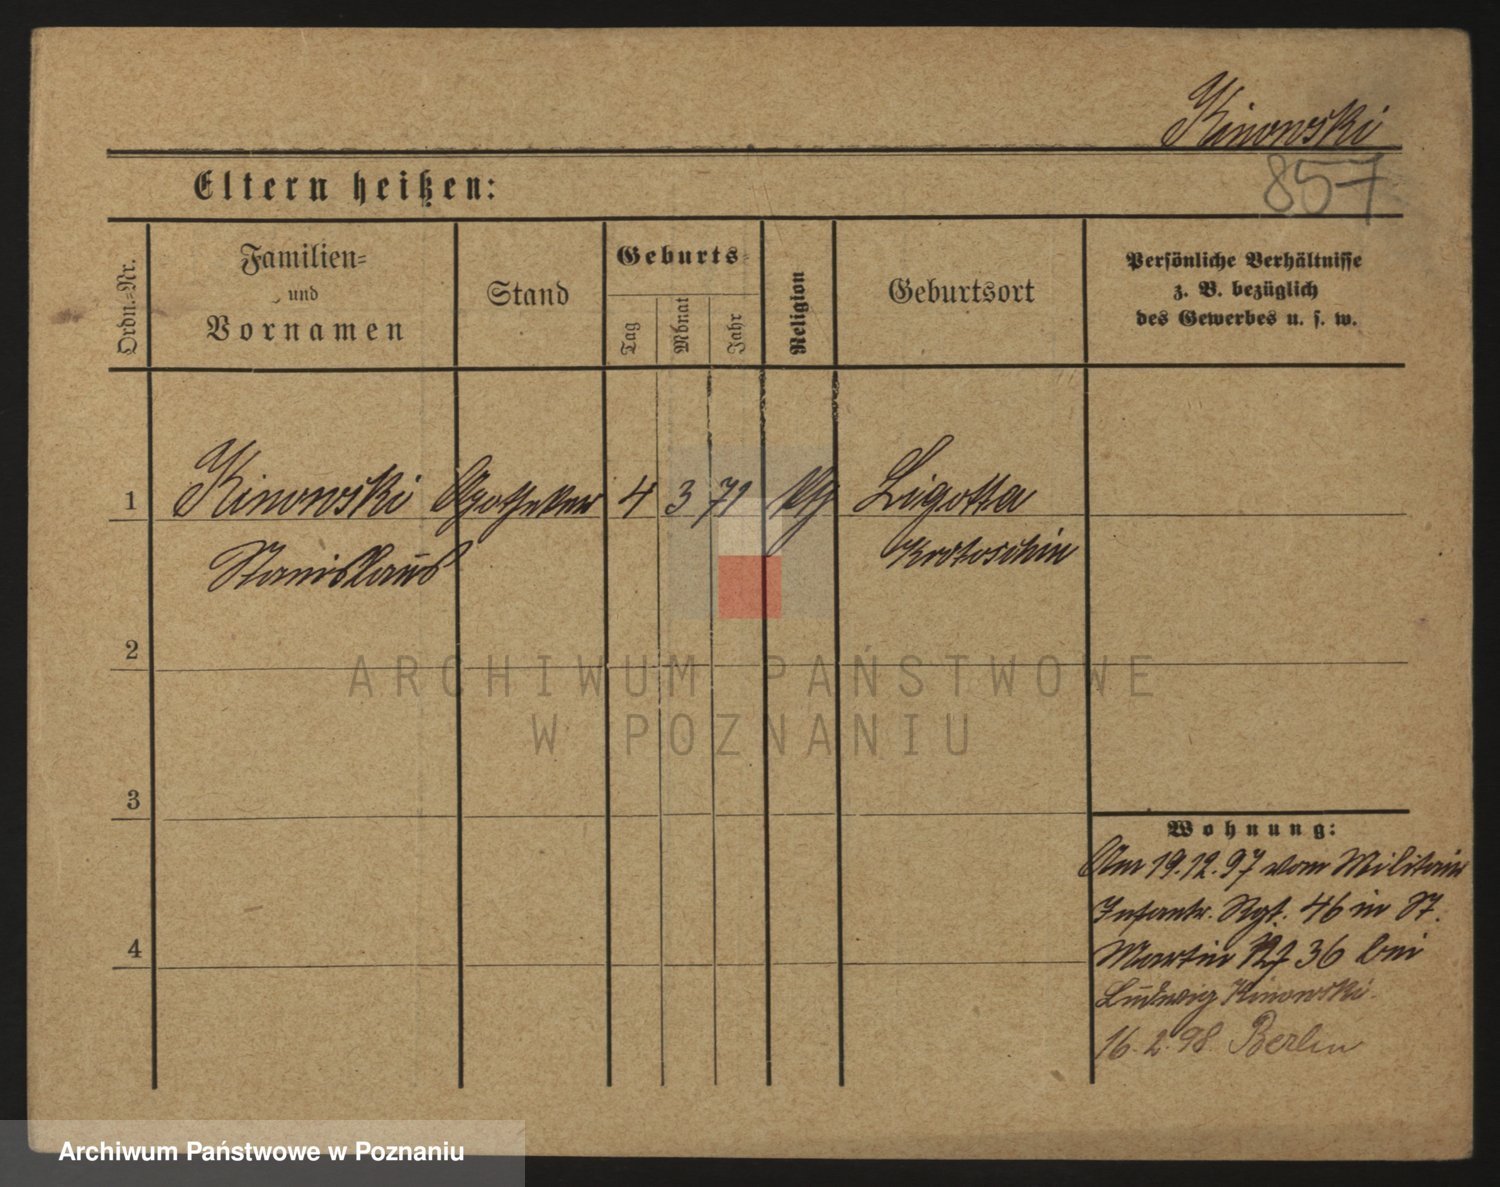 Kinowski
857
Eltern heißen:
Ordn.-Nr.
Familien-
und
Vornamen
Stand
Geburts-
Tag
Monat
Jahr
Religion
Geburtsort
Persönliche Verhältnisse
z. B. bezüglich
des Gewerbes u. s. w.
1 Kinowski Apotheker 4 3 71 Ligotta
Stanislaus Krotoschin
2
ARCHIWUM PAŃSTWOWE
W POZNANIU
3
Wohnung:
Am 19.12.97 vom Militair
Infantr. Rgt. 46 in St.
4
Martin 36 bei
Ludwig Kinowski.
16.2.98 Berlin
Archiwum Państwowe w Poznaniu